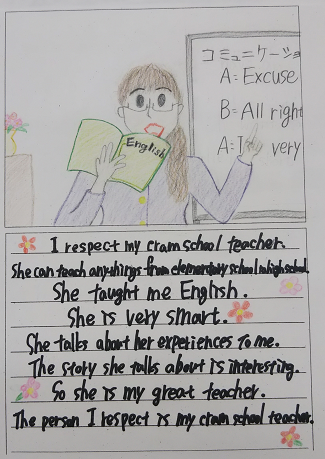 コミュニケーショ
A: Excuse
B: All right
A: I very
English
I respect my cram school teacher.
She can teach anythings from elementary school to high school.
She taught me English.
She is very smart.
She talks about her experiences to me.
The story she talks about is interesting.
So she is my great teacher.
The person I respect is my cram school teacher.